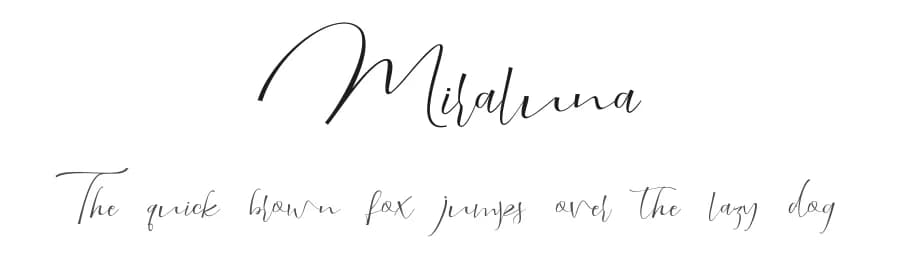 Miraluna
The quick brown fox jumps over the lazy dog